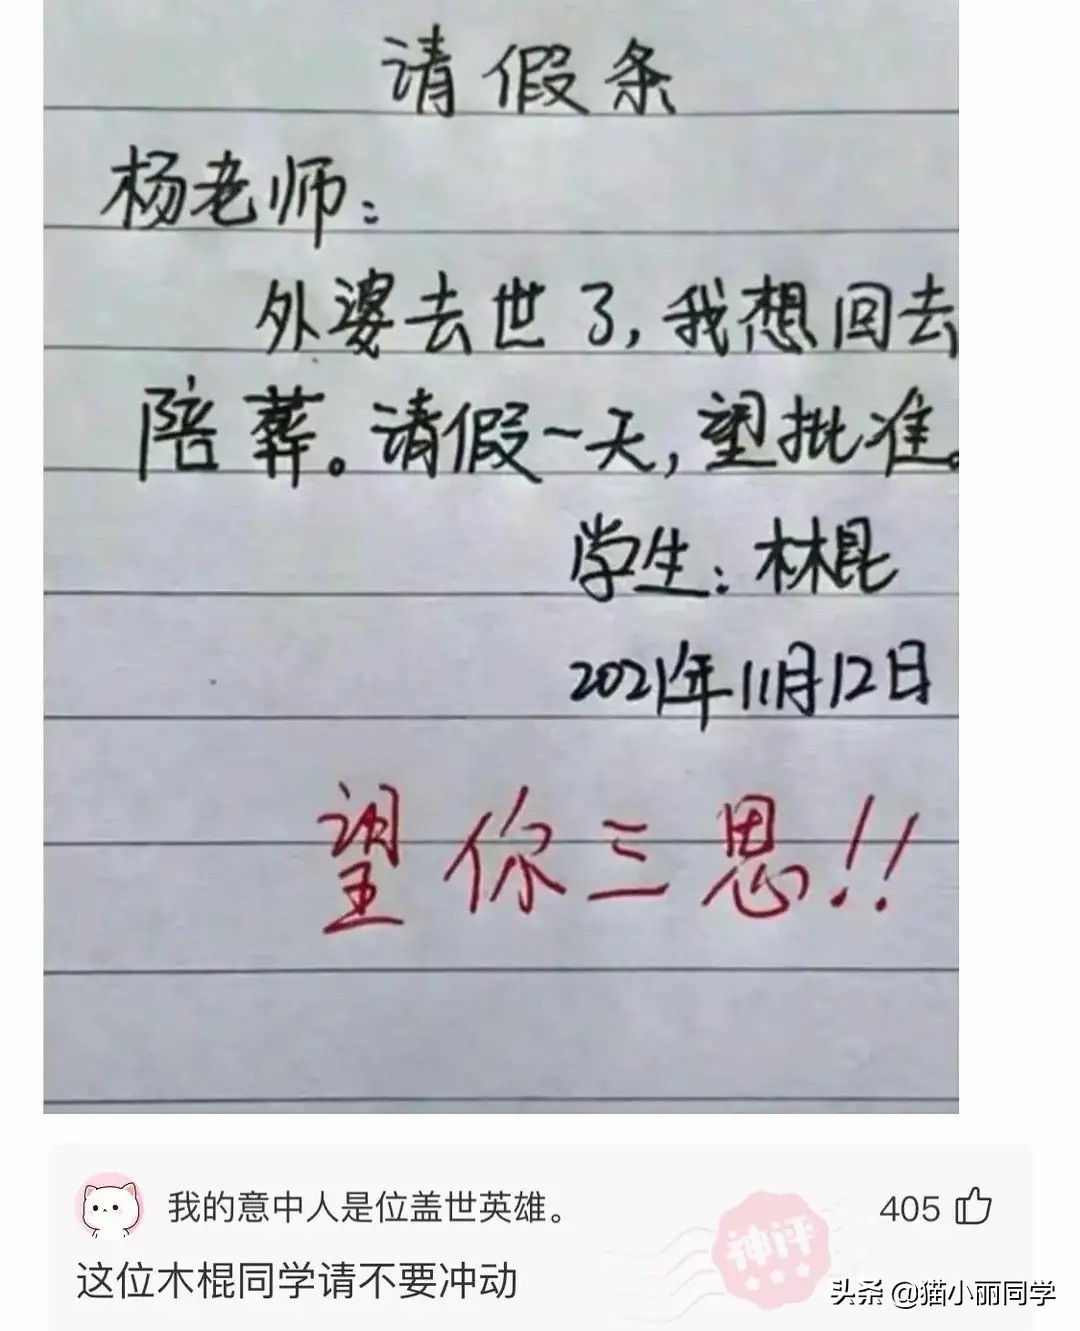 请假条
杨老师：
外婆去世了，我想回去
陪葬。请假一天，望批准。
学生：林昆
2021年11月12日
望你三思！！
我的意中人是位盖世英雄。
405
这位木棍同学请不要冲动
神评
头条 @猫小丽同学